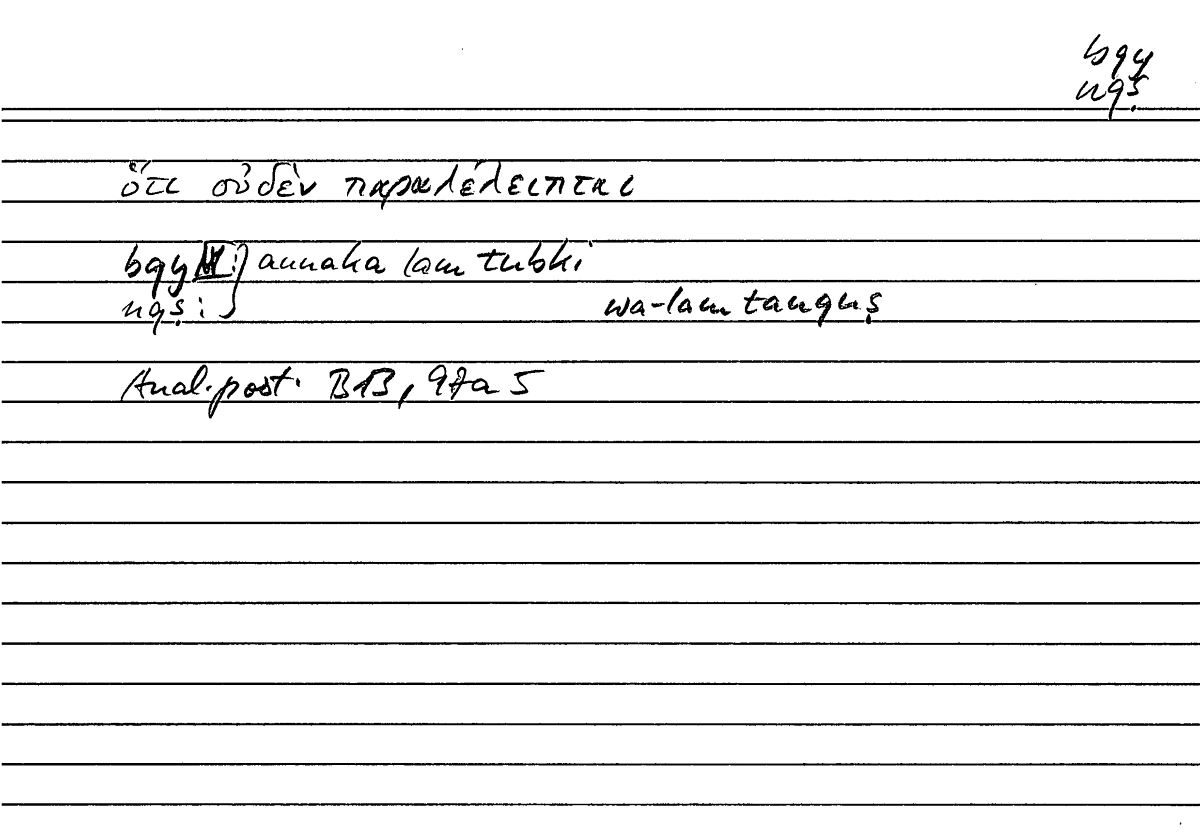 bqy
nqṣ
ὅτι οὐδὲν παραλέλειπται
bqy IV:} annaka lam tubki
nqṣ: wa-lam tanquṣ
Anal. post. B13, 97a5